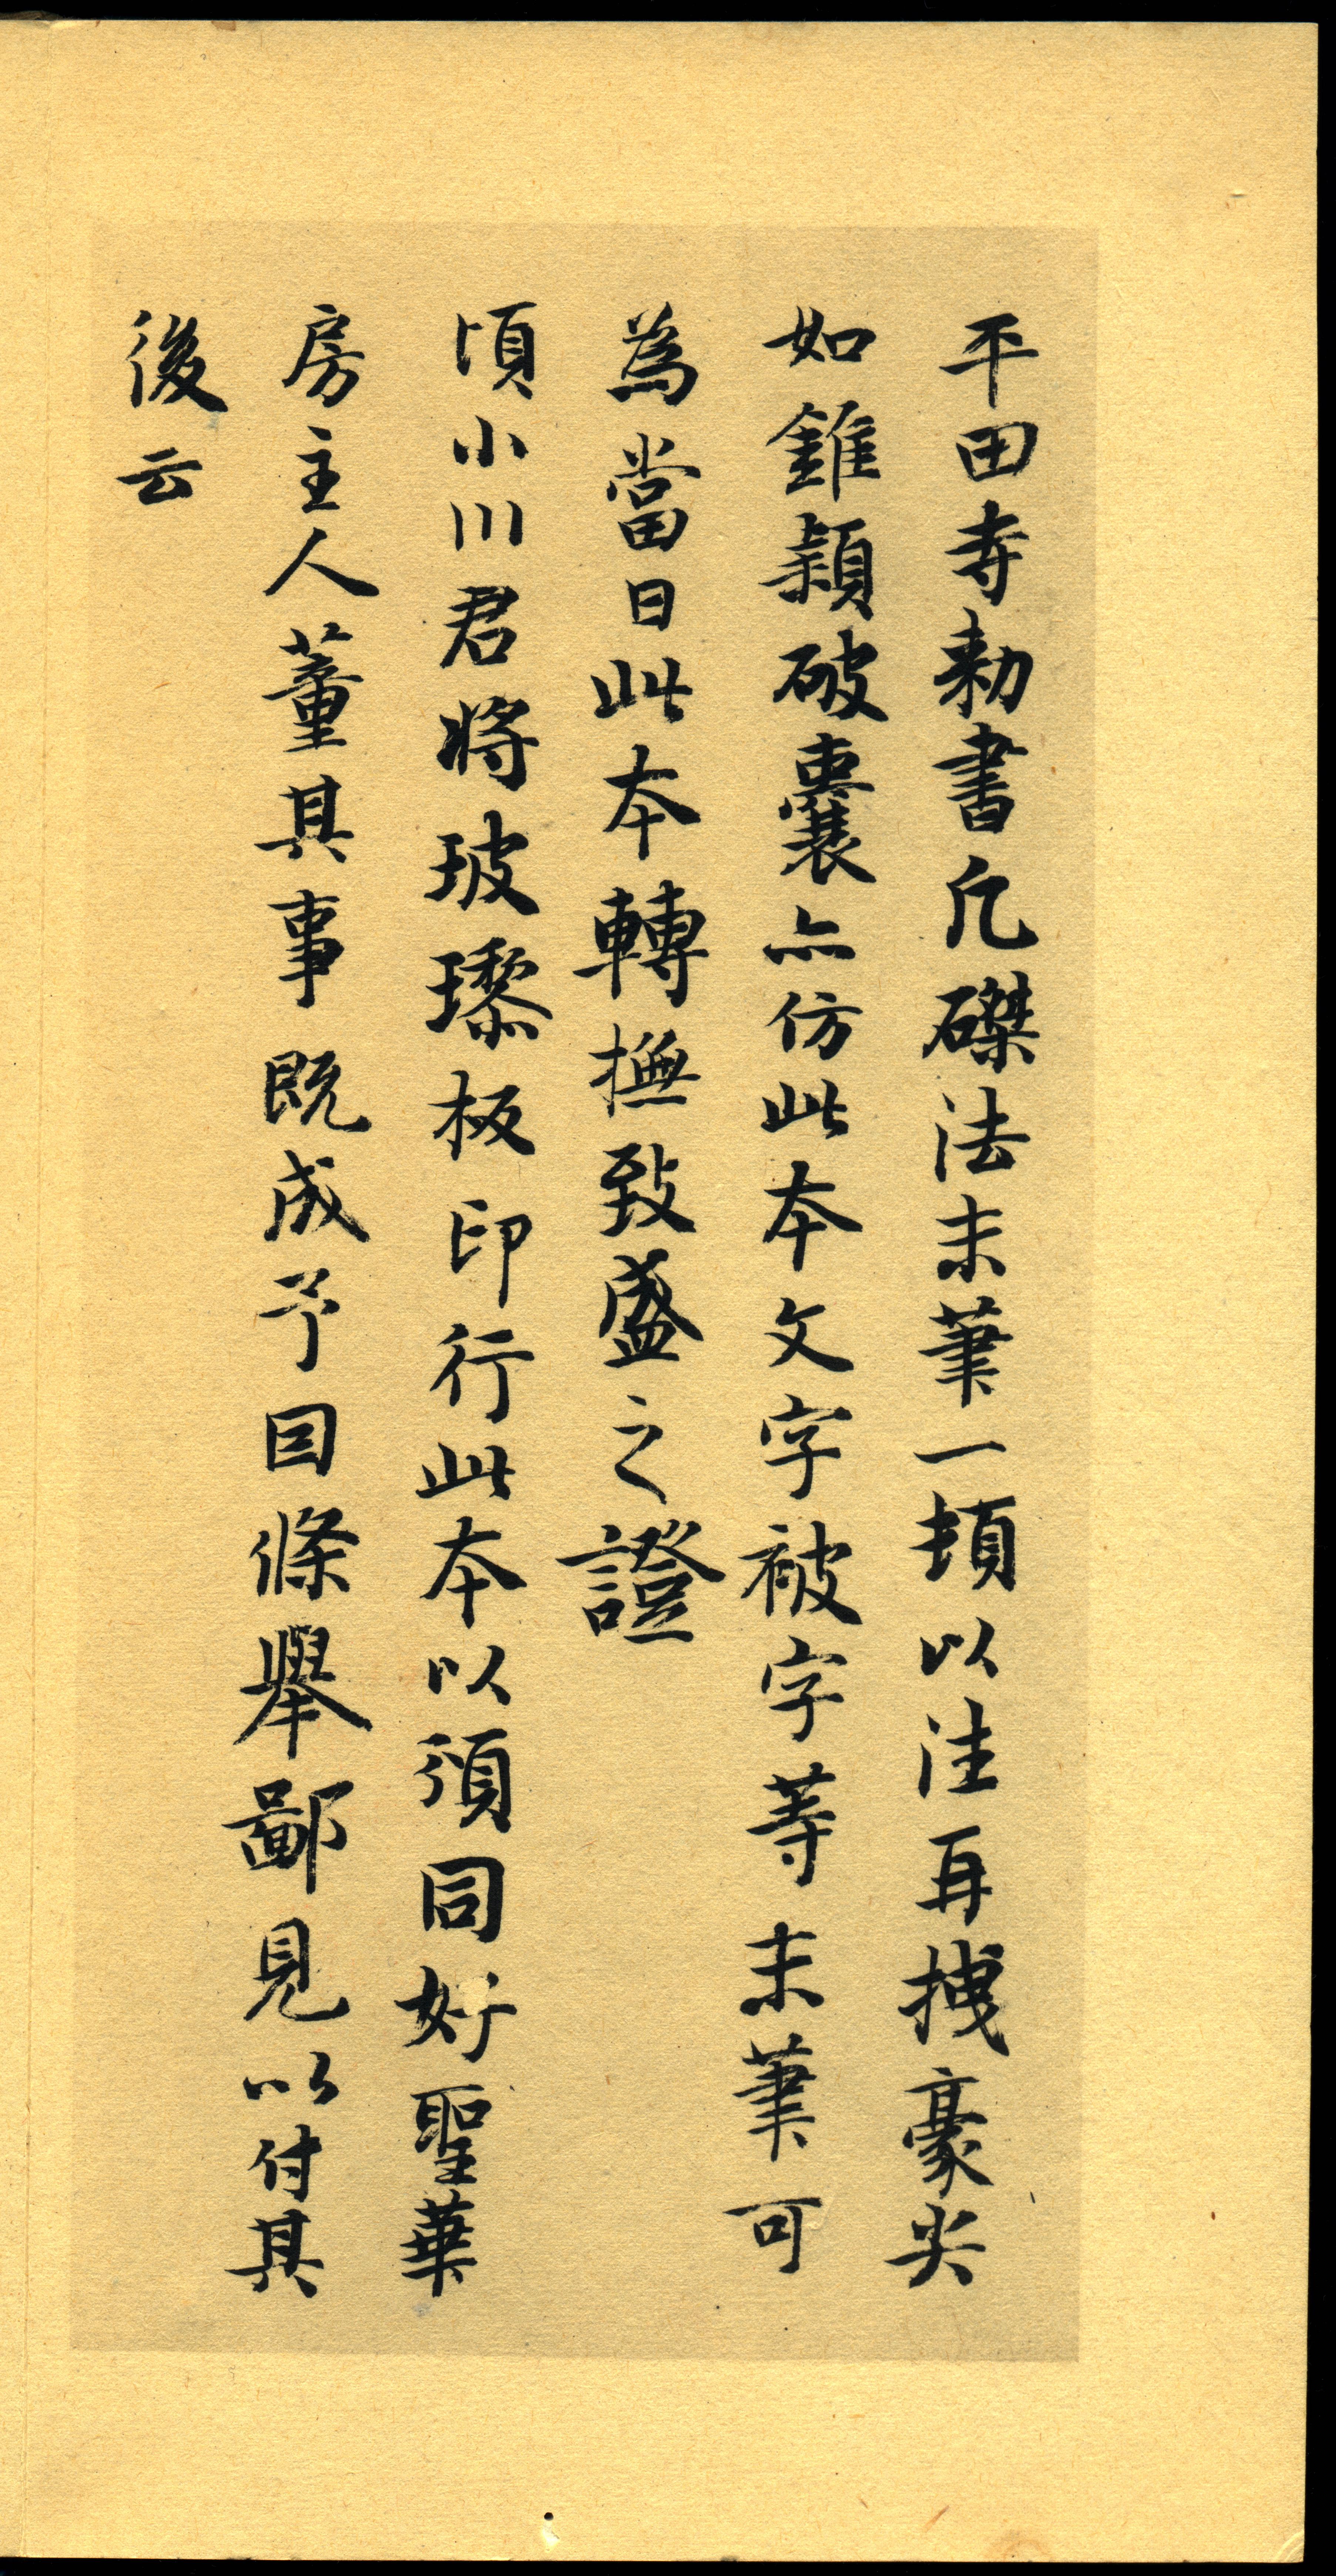 平田寺勅書凡磔法末筆一頓以注再拽豪尖
如錐穎破囊亦仿此本文字被字等末筆可
為當日此本轉撫致盛之證
頃小川君將玻瓈板印行此本以須同好聖華
房主人董其事既成予因條舉鄙見以付其
後云